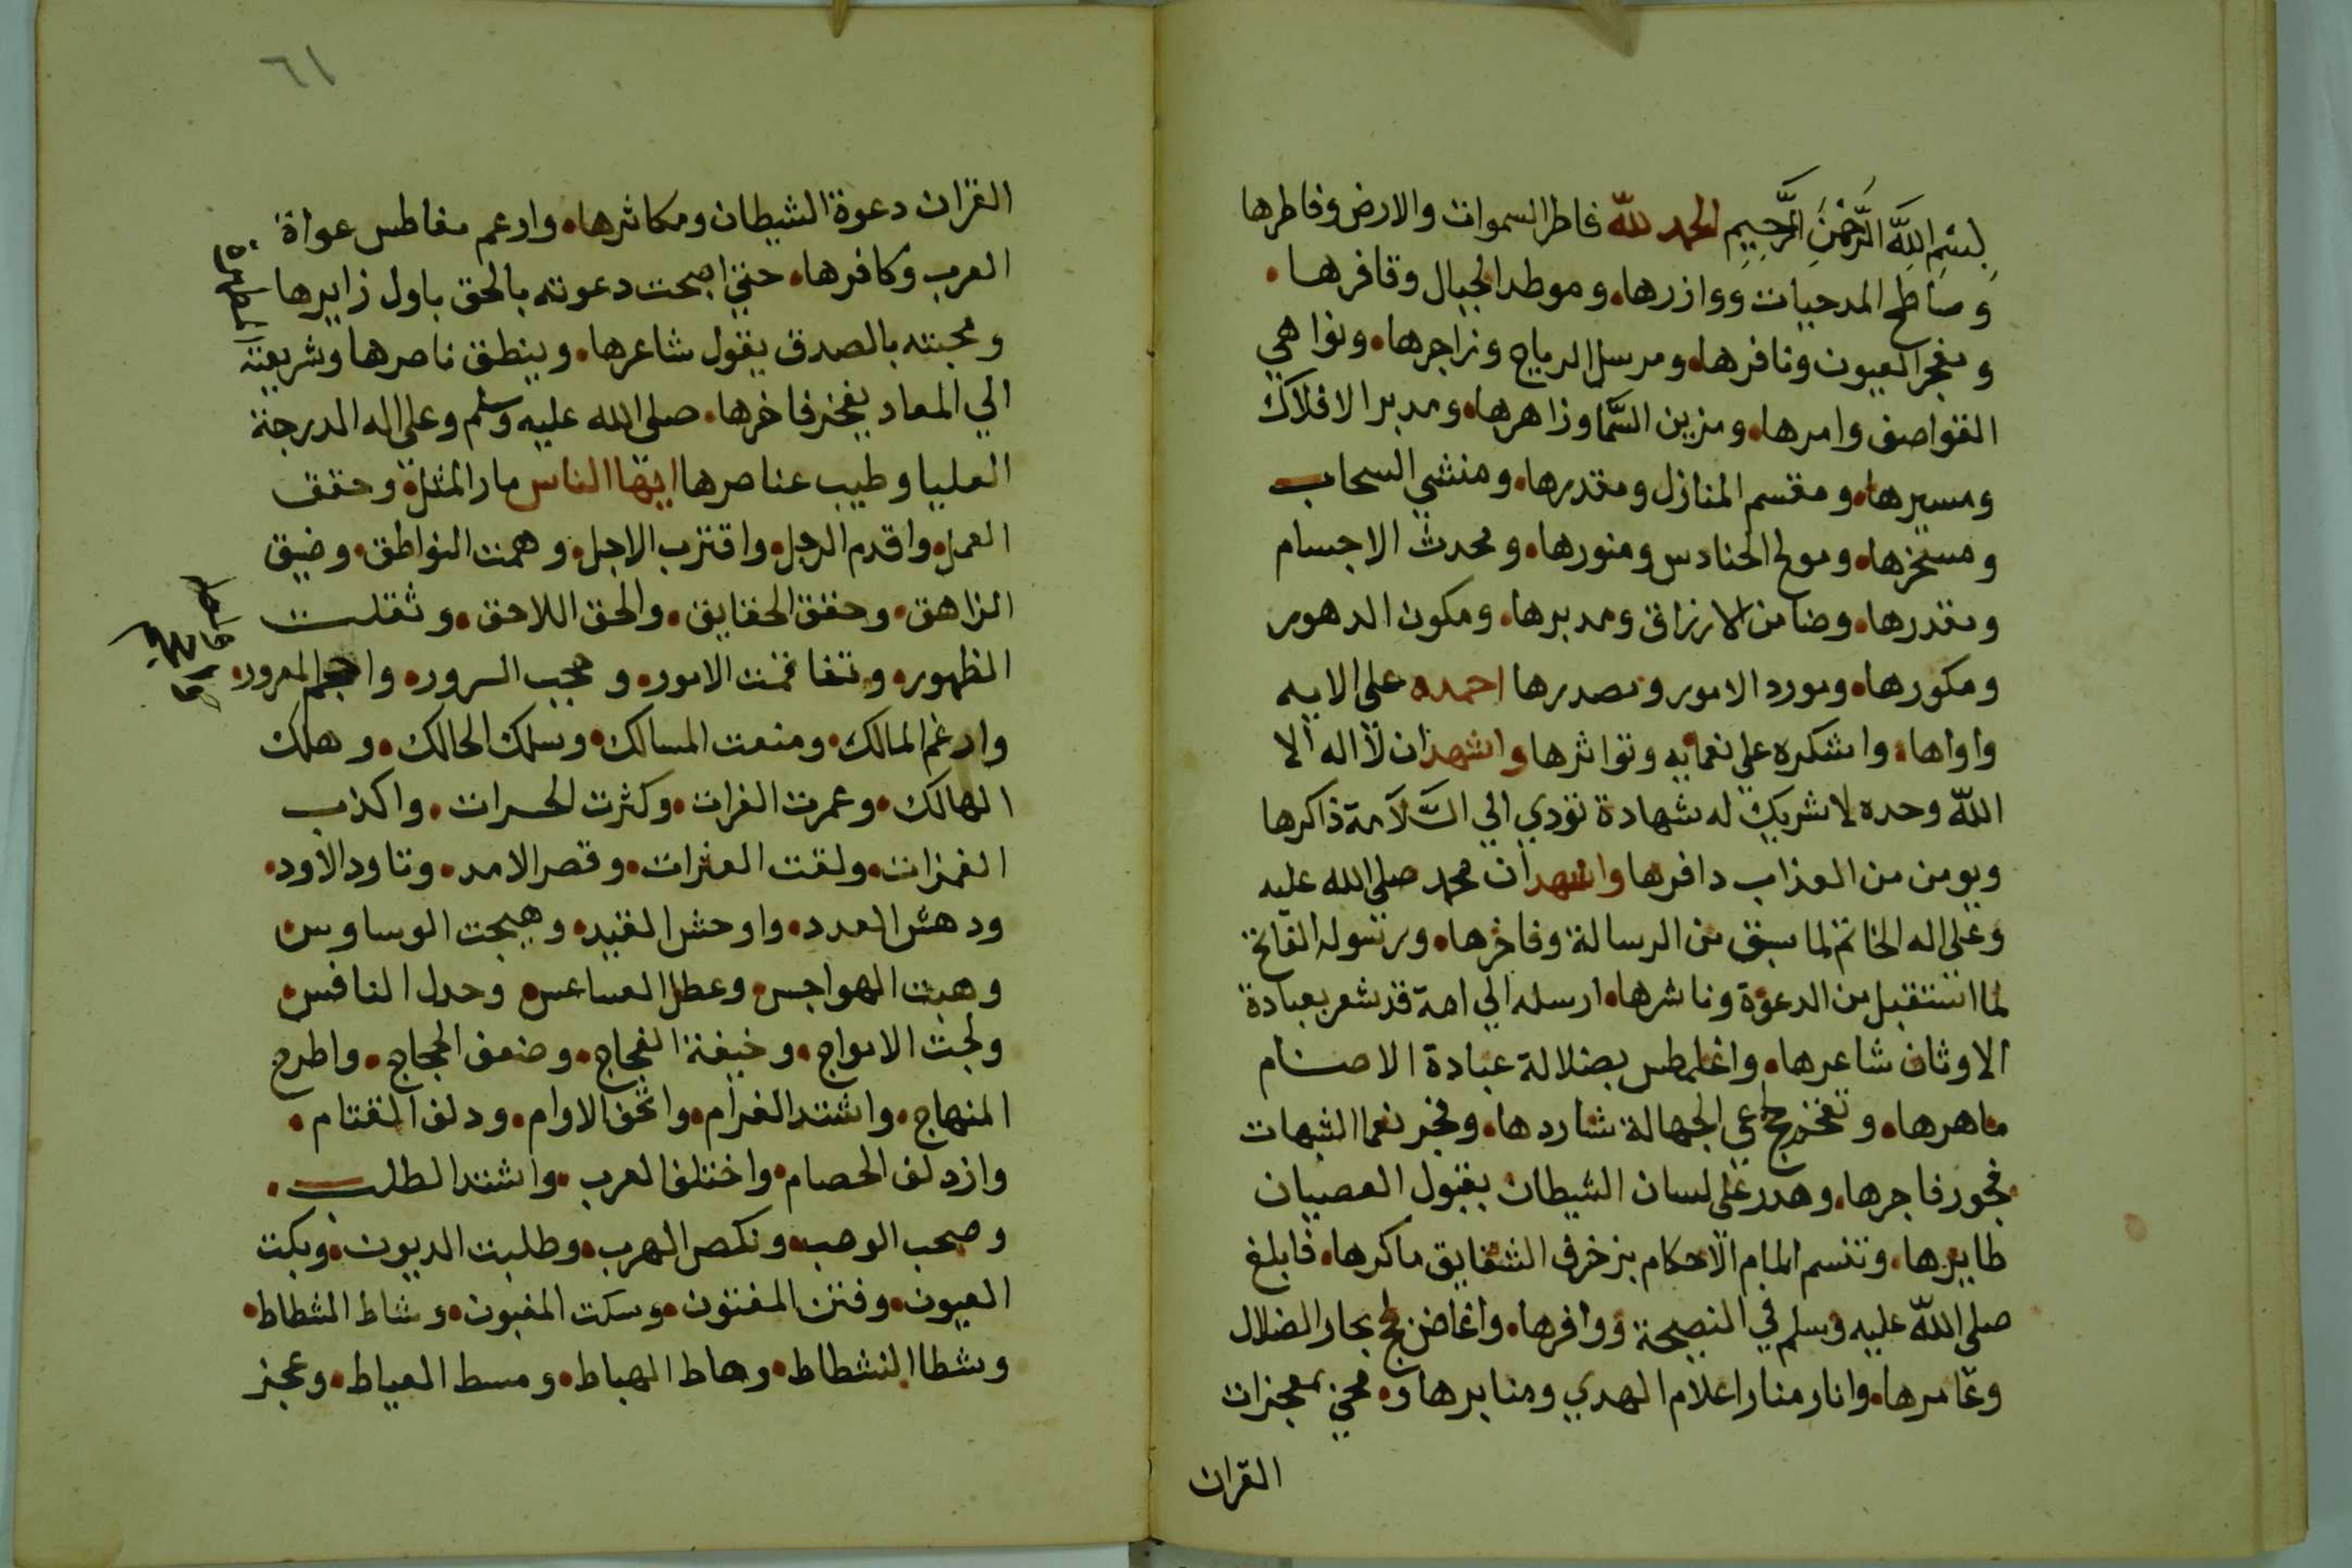 بِسْمِ اللَّهِ الرَّحْمَنِ الرَّحِيمِ الحمد للّه فاطر السموات والارض وفاطرها
وساطح المدحيات ووازرها۰ وموطد الجبال وقافرها۰
ومفجر العيون ونافرها۰ ومرسل الرياح وزاجرها۰ ونواهي
القواصف وامرها۰ ومزين السَّما وزاهرها۰ ومدبر الافلاك
ومسيرها۰ ومقسم المنازل ومقدرها۰ ومنشي السحاب
ومسخرها۰ ومولج الحنادس ومنورها۰ ومحدث الاجسام
ومقدرها۰ وضامن الارزاق ومدبرها۰ ومكون الدهور
ومكورها۰ ومورد الامور ومصدرها احمده على الايه
واواها۰ واشكره علي نعمايه وتواثرها واشهد ان لا اله الا
اللّه وحده لا شريك له شهادة تودي الي السَّلامة ذاكرها
ويومن من العذاب دافرها واشهد ان محمد صلى الله عليه
وعلى اله الخاتم لما سبق من الرسالة وفاخرها۰ ورسوله الفاتح
لما استقبل من الدعوة وناشرها۰ ارسله الي امة قد شعر بعبادة
الاوثان شاعرها۰ واغلمطس بضلالة عبادة الاصنام
ماهرها۰ وتفخر لجاعي الجهالة شاردها۰ وفجر نعما الشبهات
فجور فاجرها۰ وهدر علي لسان الشيطان بقبول العصيان
طايرها۰ وتنسم المام الاحكام بزخرف الشقايق ماكرها۰ فابلغ
صلى اللّه عليه وسلم في النصيحة ووافرها۰ واغاض لج بحار الضلال
وغامرها۰ وانار منار اعلام الهدي ومنابرها و۰ محي بمعجزات
القران
٦١
القران دعوة الشيطان ومكاثرها۰ وارغم مغاطس عواة
العرب وكافرها۰ حتي اصبحت دعوته بالحق باول زايرها
ومحبته بالصدق يقول شاعرها۰ وينطق ناصرها وشريعته
الي المعاد يفخر فاخرها۰ صلى الله عليه وسلم وعلي اله الدرجة
العليا وطيب عناصرها ايها الناس سار المثل۰ وحقف
العمل۰ واقدم الرجل۰ واقترب الاجل۰ وهمت النواطق۰ وضيق
الزاهق۰ وحقق الحقايق۰ والحق اللاحق۰ وثقلت
الظهور۰ وتفاقمت الامور۰ وحجب السرور۰ واحجم المعرور۰
وارغم المالك۰ ومنعت المسالك۰ وسلك الحالك۰ وهلك
الهالك۰ وعمرت الفرات۰ وكثرت الحسرات۰ واكذب
الغمزات۰ ولقت العثرات۰ وقصر الامد۰ وتاود الاود۰
ودهش العدد۰ واوحش الفقيد۰ وهيجت الوساوس۰
وهبت الهواجس۰ وعطل العساعس۰ وحدل النافس۰
ولجت الامواج۰ وخيفة الفجاج۰ وضعف الحجاج۰ واطرح
المنهاج۰ واشتد الغرام۰ واتحف الاوام۰ ودلف القتام۰
وازدلف الخصام۰ واختلف العرب۰ واشتد الطلب۰
وصحب الوصب۰ ونكص الهرب۰ وطلبت الديون۰ وبكت
العيون۰ وفتن المفتون۰ وسكت المغبون۰ وشاط الشطاط۰
وشطا النشطاط۰ وهاط الهباط۰ ومسط العياط۰ وعجز